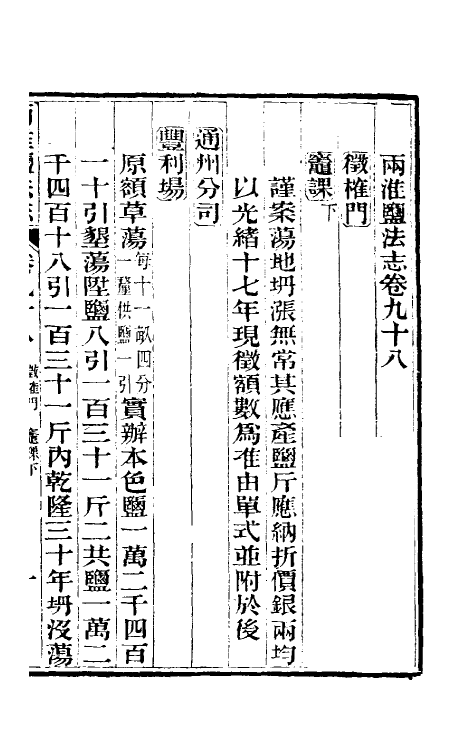 兩淮鹽法志卷九十八
徵榷門
竈課下
謹案蕩地坍漲無常其應產鹽斤應納折價銀兩均
以光緒十七年現徵額數爲准由單式並附於後
通州分司
豐利場
原額草蕩每十一畝四分一釐供鹽一引實辦本色鹽一萬二千四百
一十引墾蕩陞鹽八引一百三十一斤二共鹽一萬二
千四百十八引一百三十一斤內乾隆三十年坍沒蕩
徵榷門 竈課下 一